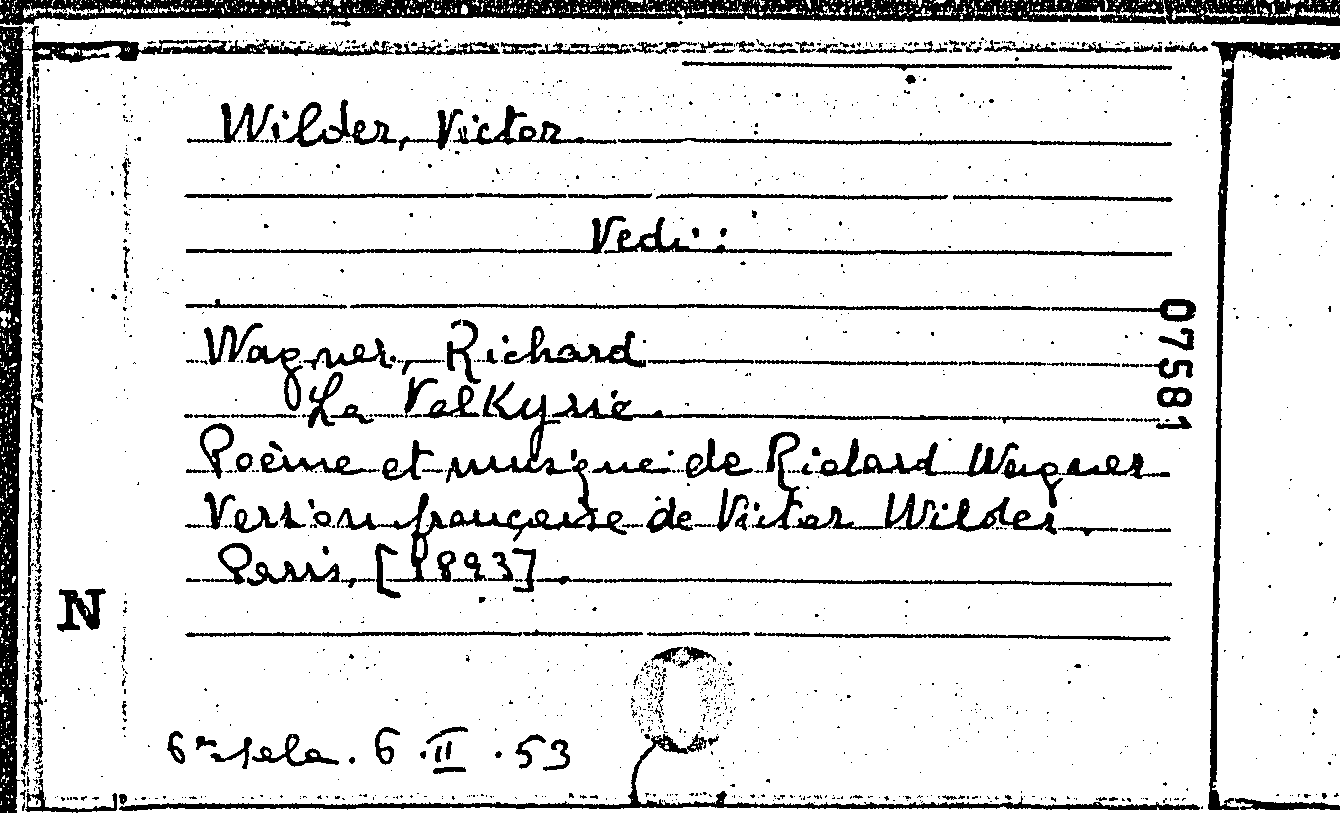 Wilder, Victor.
Vedi:
Wagner, Richard
La Valkyrie.
Poème et musique de Richard Wagner
Version française de Victor Wilder.
Paris, [1893].
07581
N
6ª sala. 6.II.53